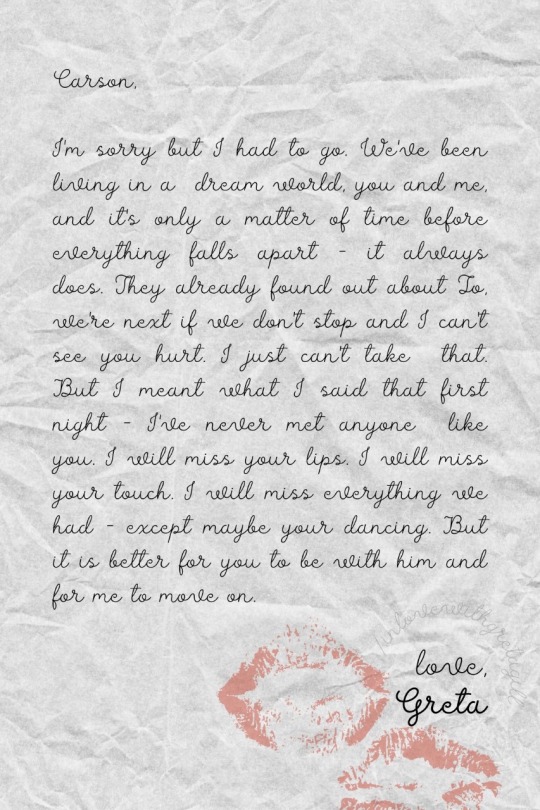 Carson,
I'm sorry but I had to go. We've been
living in a dream world, you and me,
and it's only a matter of time before
everything falls apart - it always
does. They already found out about Jo,
we're next if we don't stop and I can't
see you hurt. I just can't take that.
But I meant what I said that first
night - I've never met anyone like
you. I will miss your lips. I will miss
your touch. I will miss everything we
had - except maybe your dancing. But
it is better for you to be with him and
for me to move on.
love,
Greta